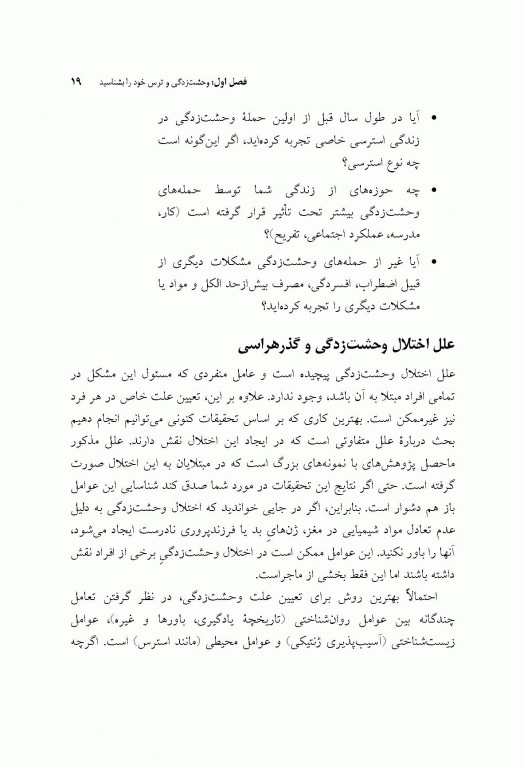 فصل اول: وحشت‌زدگی و ترس خود را بشناسید ۱۹
• آیا در طول سال قبل از اولین حملهٔ وحشت‌زدگی در
زندگی استرسی خاصی تجربه کرده‌اید، اگر این‌گونه است
چه نوع استرسی؟
• چه حوزه‌های از زندگی شما توسط حمله‌های
وحشت‌زدگی بیشتر تحت تأثیر قرار گرفته است (کار،
مدرسه، عملکرد اجتماعی، تفریح)؟
• آیا غیر از حمله‌های وحشت‌زدگی مشکلات دیگری از
قبیل اضطراب، افسردگی، مصرف بیش‌ازحد الکل و مواد یا
مشکلات دیگری را تجربه کرده‌اید؟
علل اختلال وحشت‌زدگی و گذرهراسی
علل اختلال وحشت‌زدگی پیچیده است و عامل منفردی که مسئول این مشکل در
تمامی افراد مبتلا به آن باشد، وجود ندارد. علاوه بر این، تعیین علت خاص در هر فرد
نیز غیرممکن است. بهترین کاری که بر اساس تحقیقات کنونی می‌توانیم انجام دهیم
بحث دربارهٔ علل متفاوتی است که در ایجاد این اختلال نقش دارند. علل مذکور
ماحصل پژوهش‌های با نمونه‌های بزرگ است که در مبتلایان به این اختلال صورت
گرفته است. حتی اگر نتایج این تحقیقات در مورد شما صدق کند شناسایی این عوامل
باز هم دشوار است. بنابراین، اگر در جایی خواندید که اختلال وحشت‌زدگی به دلیل
عدم تعادل مواد شیمیایی در مغز، ژن‌های بد یا فرزندپروری نادرست ایجاد می‌شود،
آنها را باور نکنید. این عوامل ممکن است در اختلال وحشت‌زدگیِ برخی از افراد نقش
داشته باشند اما این فقط بخشی از ماجراست.
احتمالاً بهترین روش برای تعیین علت وحشت‌زدگی، در نظر گرفتن تعامل
چندگانه بین عوامل روان‌شناختی (تاریخچهٔ یادگیری، باورها و غیره)، عوامل
زیست‌شناختی (آسیب‌پذیری ژنتیکی) و عوامل محیطی (مانند استرس) است. اگرچه